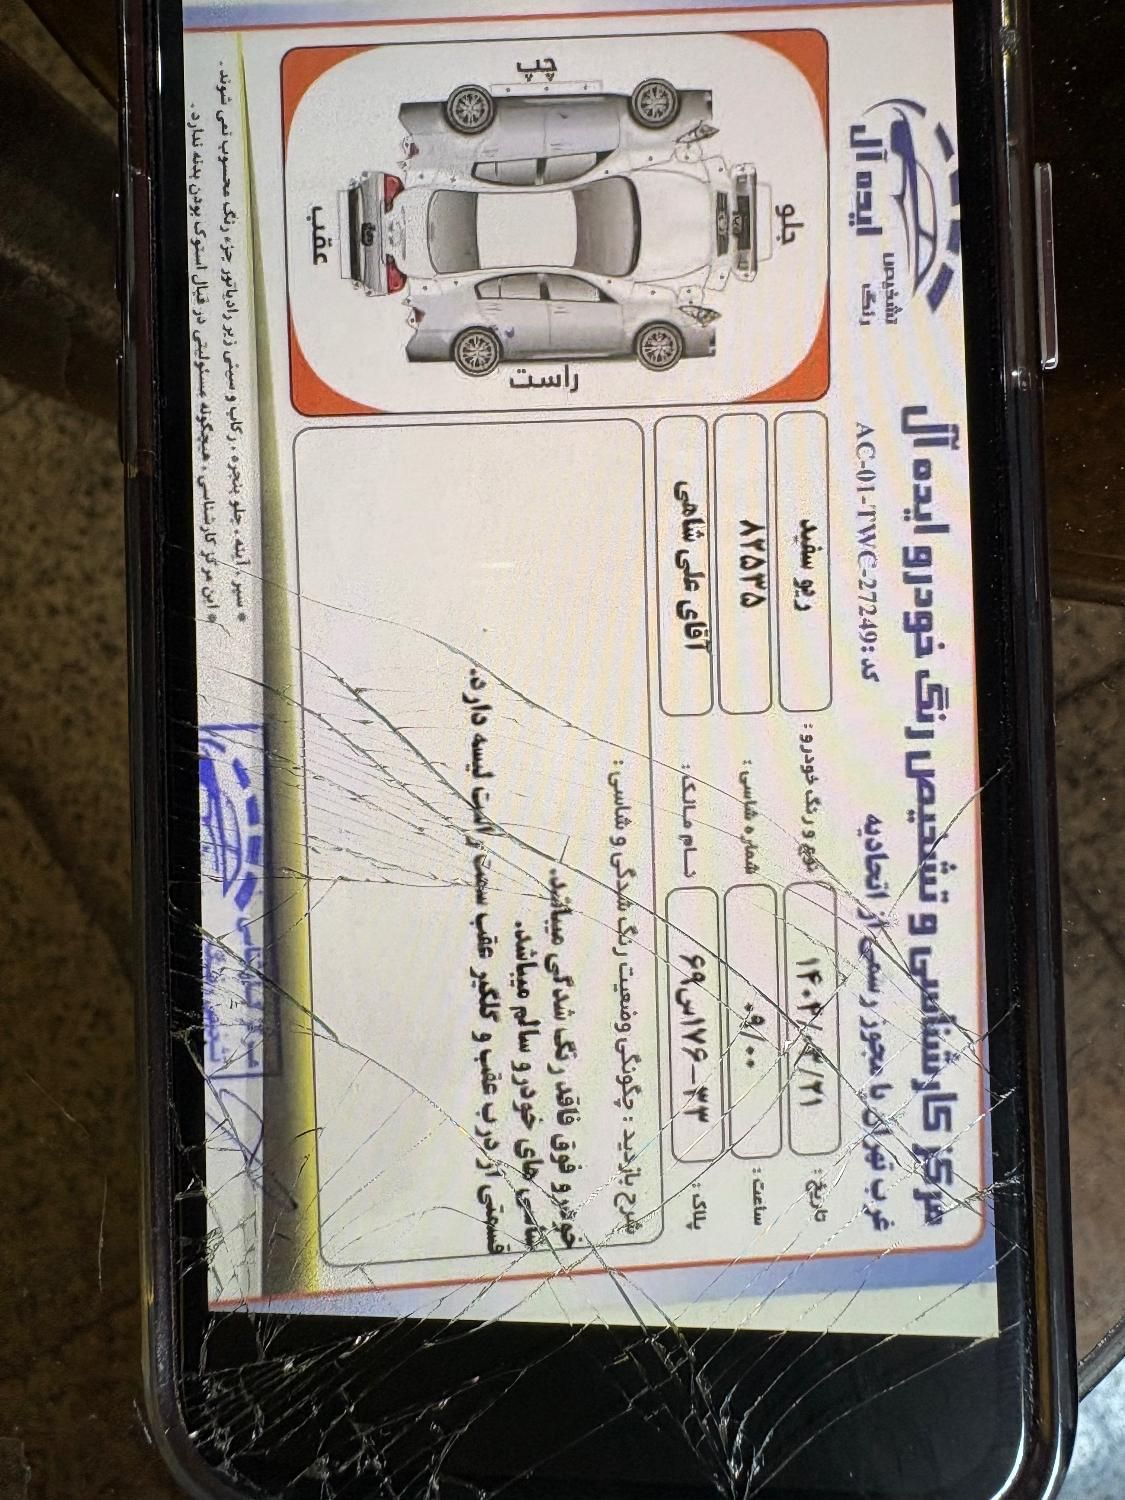 مرکز کارشناسی و تشخیص رنگ خودرو ایده آل
غرب تهران با مجوز رسمی از اتحادیه
کد: AC-01-TWC-27249
ایده آل
تشخیص
رنگ
تاریخ :
نوع و رنگ خودرو : ریو سفید
ساعت : ۰۹/۰۰
شماره شاسی : ۸۲۵۳۵
پلاک : ۳۳-۱۷۶س۶۹
نام مالک : آقای علی شاهی
شرح بازدید : چگونگی وضعیت رنگ شدگی و شاسی :
خودرو فوق فاقد رنگ شدگی میباشد.
شاسی های خودرو سالم میباشد.
قسمتی از درب عقب و گلگیر عقب سمت راست لیسه دارد.
چپ
جلو
عقب
راست
* سپر ، آینه ، جلو پنجره ، رکاب و سینی زیر رادیاتور جزء رنگ محسوب نمی شوند .
* این مرکز کارشناسی ، هیچگونه مسئولیتی در قبال استوک بودن بدنه ندارد .